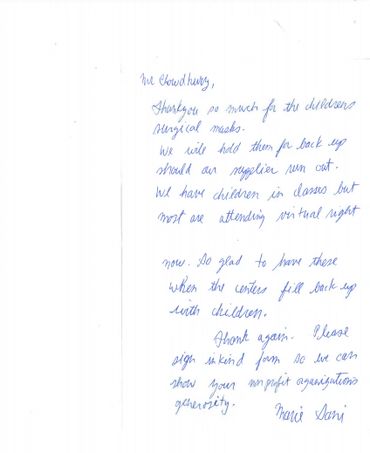 Mr Chowdhury,
Thankyou so much for the childrens
surgical masks.
We will hold them for back up
should our supplier run out.
We have children in classes but
most are attending virtual right
now. So glad to have these
when the centers fill back up
with children.
Thank again. Please
sign inkind form so we can
show your nonprofit organizations
generosity.
Marie